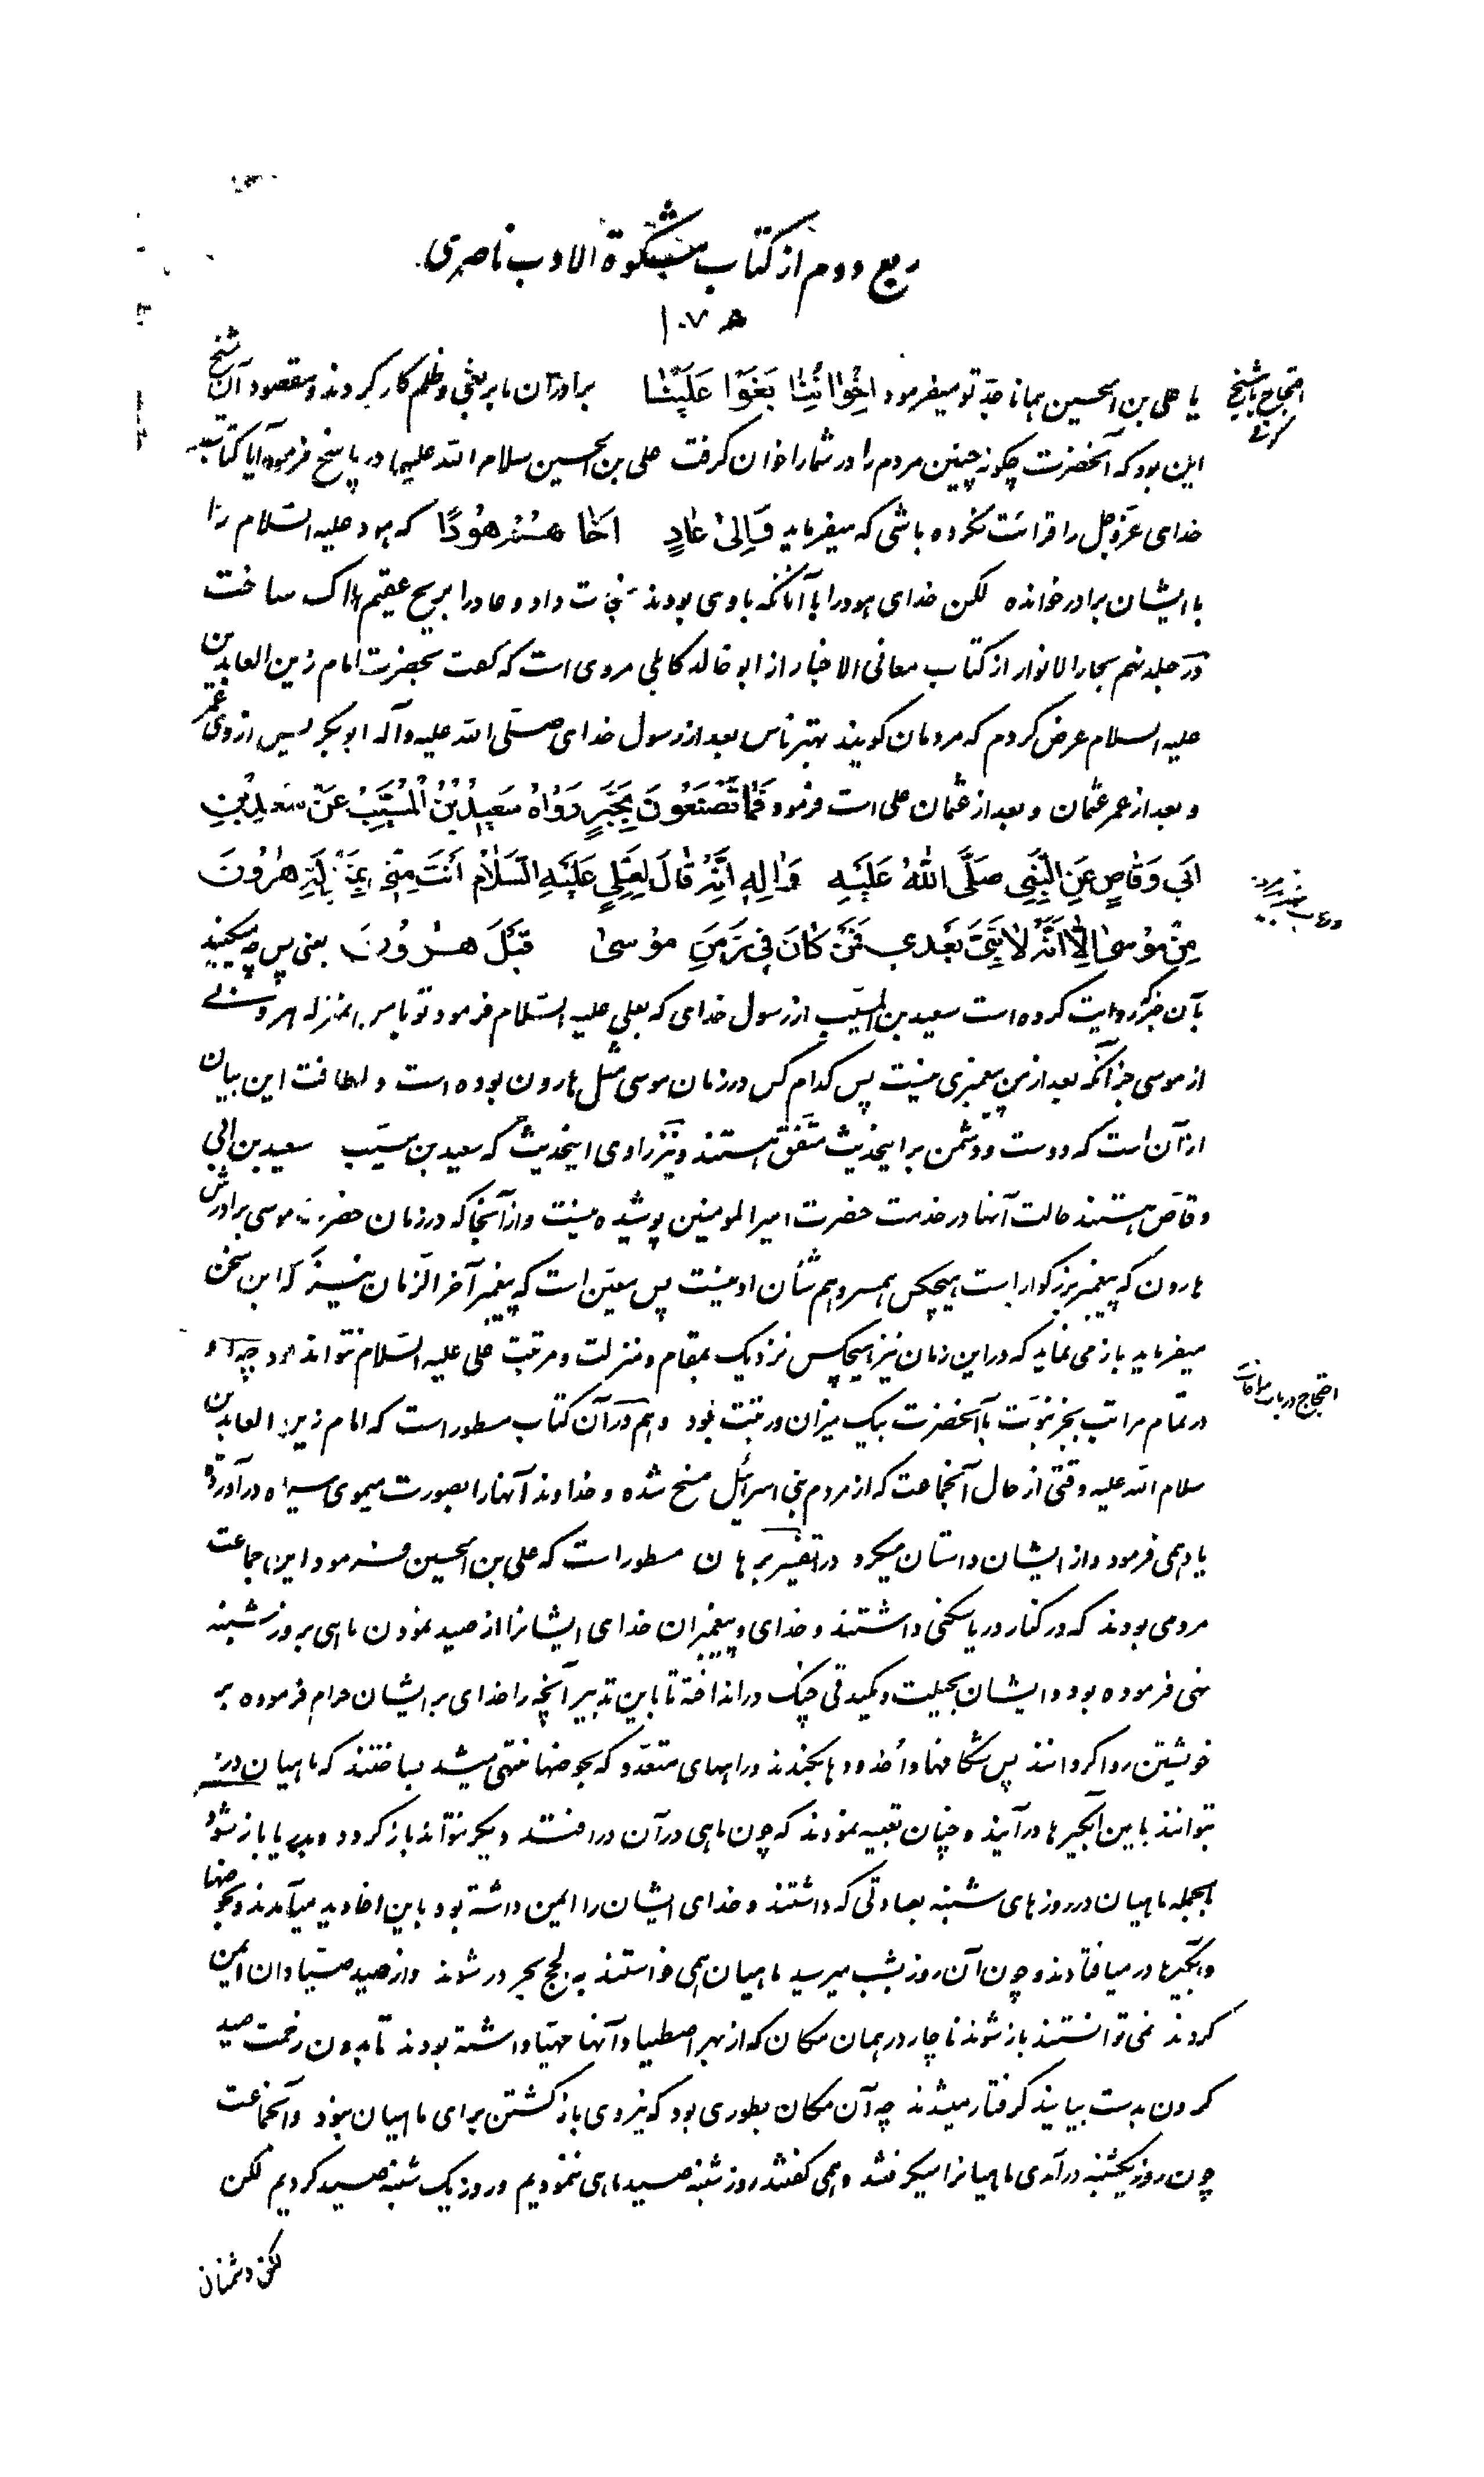 ربع دوم از کتاب مشکوة الادب ناصری
۱۰۷
احتجاج با شیخ
کوفی
یا علی بن الحسین همانا جد تو میفرمود اِخْوانُنا بَغَوْا عَلَیْنا برادران ما بر بغی و ظلم کار کردند و مقصود آن شیخ
این بود که آنحضرت چگونه چنین مردم را در شمار اخوان گرفت علی بن الحسین سلام الله علیهما در پاسخ فرمود آیا کتاب
خدای عزوجل را قرائت نکرده باشی که میفرماید وَاِلیٰ عادٍ اَخاهُمْ هُودًا که هود علیه السلام را
با ایشان برادر خوانده لکن خدای هود را با آنانکه با وی بودند نجات داد و عاد را بریح عقیم هلاک ساخت
در جلد نهم بحار الانوار از کتاب معانی الاخبار از ابو خالد کابلی مروی است که گفت بحضرت امام زین العابدین
علیه السلام عرض کردم که مردمان گویند بهتر ناس بعد از رسول خدای صلی الله علیه و آله ابوبکر پس از وی عمر
و بعد از عمر عثمان و بعد از عثمان علی است فرمود فَما تَصْنَعُونَ بِخَبَرٍ رَواهُ سَعیدُ بْنُ الْمُسَیِّبِ عَنْ سَعْدِ بْنِ
اَبی وَقّاصٍ عَنِ النَّبِیِّ صَلَّی اللهُ عَلَیْهِ وَ الِهِ اَنَّهُ قالَ لِعَلِیٍّ عَلَیْهِ السَّلامُ اَنْتَ مِنّی بِمَنْزِلَةِ هارُونَ
مِنْ مُوسیٰ اِلّا اَنَّهُ لا نَبِیَّ بَعْدی فَمَنْ کانَ فی زَمَنِ مُوسیٰ مِثْلَ هارُونَ یعنی پس چه میکنید
بآن خبر که روایت کرده است سعید بن المسیب از رسول خدای که بعلی علیه السلام فرمود تو با من بمنزله هارونی
از موسی جز آنکه بعد از من پیغمبری نیست پس کدام کس در زمان موسی مثل هارون بوده است و لطافت این بیان
از آن است که دوست و دشمن بر اینحدیث متفق هستند و نیز راوی اینحدیث که سعید بن مسیب سعید بن ابی
وقاص هستند حالت آنها در خدمت حضرت امیر المومنین پوشیده نیست و از آنجا که در زمان حضرت موسی برادرش
هارون که پیغمبر بزرگوار است هیچکس همسر و هم شأن او نیست پس معین است که پیغمبر آخر الزمان نیز که این سخن
میفرماید باز می نماید که در این زمان نیز هیچکس نزدیک بمقام و منزلت و مرتبت علی علیه السلام نتواند بود چه او
احتجاج درباره
در تمام مراتب بجز نبوت با آنحضرت بیک میزان و رتبت بود و هم در آن کتاب مسطور است که امام زین العابدین
سلام الله علیه وقتی از حال آنجماعت که از مردم بنی اسرائیل مسخ شده و خداوند آنها را بصورت میمون سیاه درآورده
یاد می فرمود و از ایشان داستان میکرد در تفسیر برهان مسطور است که علی بن الحسین فرمود این جماعت
مردمی بودند که در کنار دریا سکنی داشتند و خدای و پیغمبران خدای ایشانرا از صید نمودن ماهی بروز شنبه
نهی فرموده بود و ایشان بحیلت و کیدتی چنگ در انداخته تا باین تدبیر آنچه را خدای بر ایشان حرام فرموده بر
خویشتن روا گردانند پس شکافها و اُخدودها بکندند و راههای متعدد که بحوضها منتهی میشد بساختند که ماهیان
بتوانند باین آبگیرها درآیند و چنان تعبیه نمودند که چون ماهی در آن درافتند دیگر نتواند باز گردد و بدریا باز شود
بالجمله ماهیان در روزهای شنبه بعادتی که داشتند و خدای ایشان را ایمن داشته بود باین اخادید میآمدند و بحوضها
و آبگیرها درمیافتادند و چون آن روز بشب میرسید ماهیان همی خواستند به لجج بحر در شوند و از صید صیادان ایمن
گردند نمی توانستند باز شوند ناچار در همان مکان که از بهر اصطیاد آنها مهیا داشته بودند تا بدون زحمت صید
کردن بدست بیایند گرفتار میشدند چه آن مکان بطوری بود که نیروی باز گشتن برای ماهیان نبود و آنجماعت
چون روز یکشنبه درآمدی ماهیانرا میگرفتند و همی گفتند روز شنبه صید ماهی ننمودیم و روز یک شنبه صید کردیم لکن
لکن دشمنان